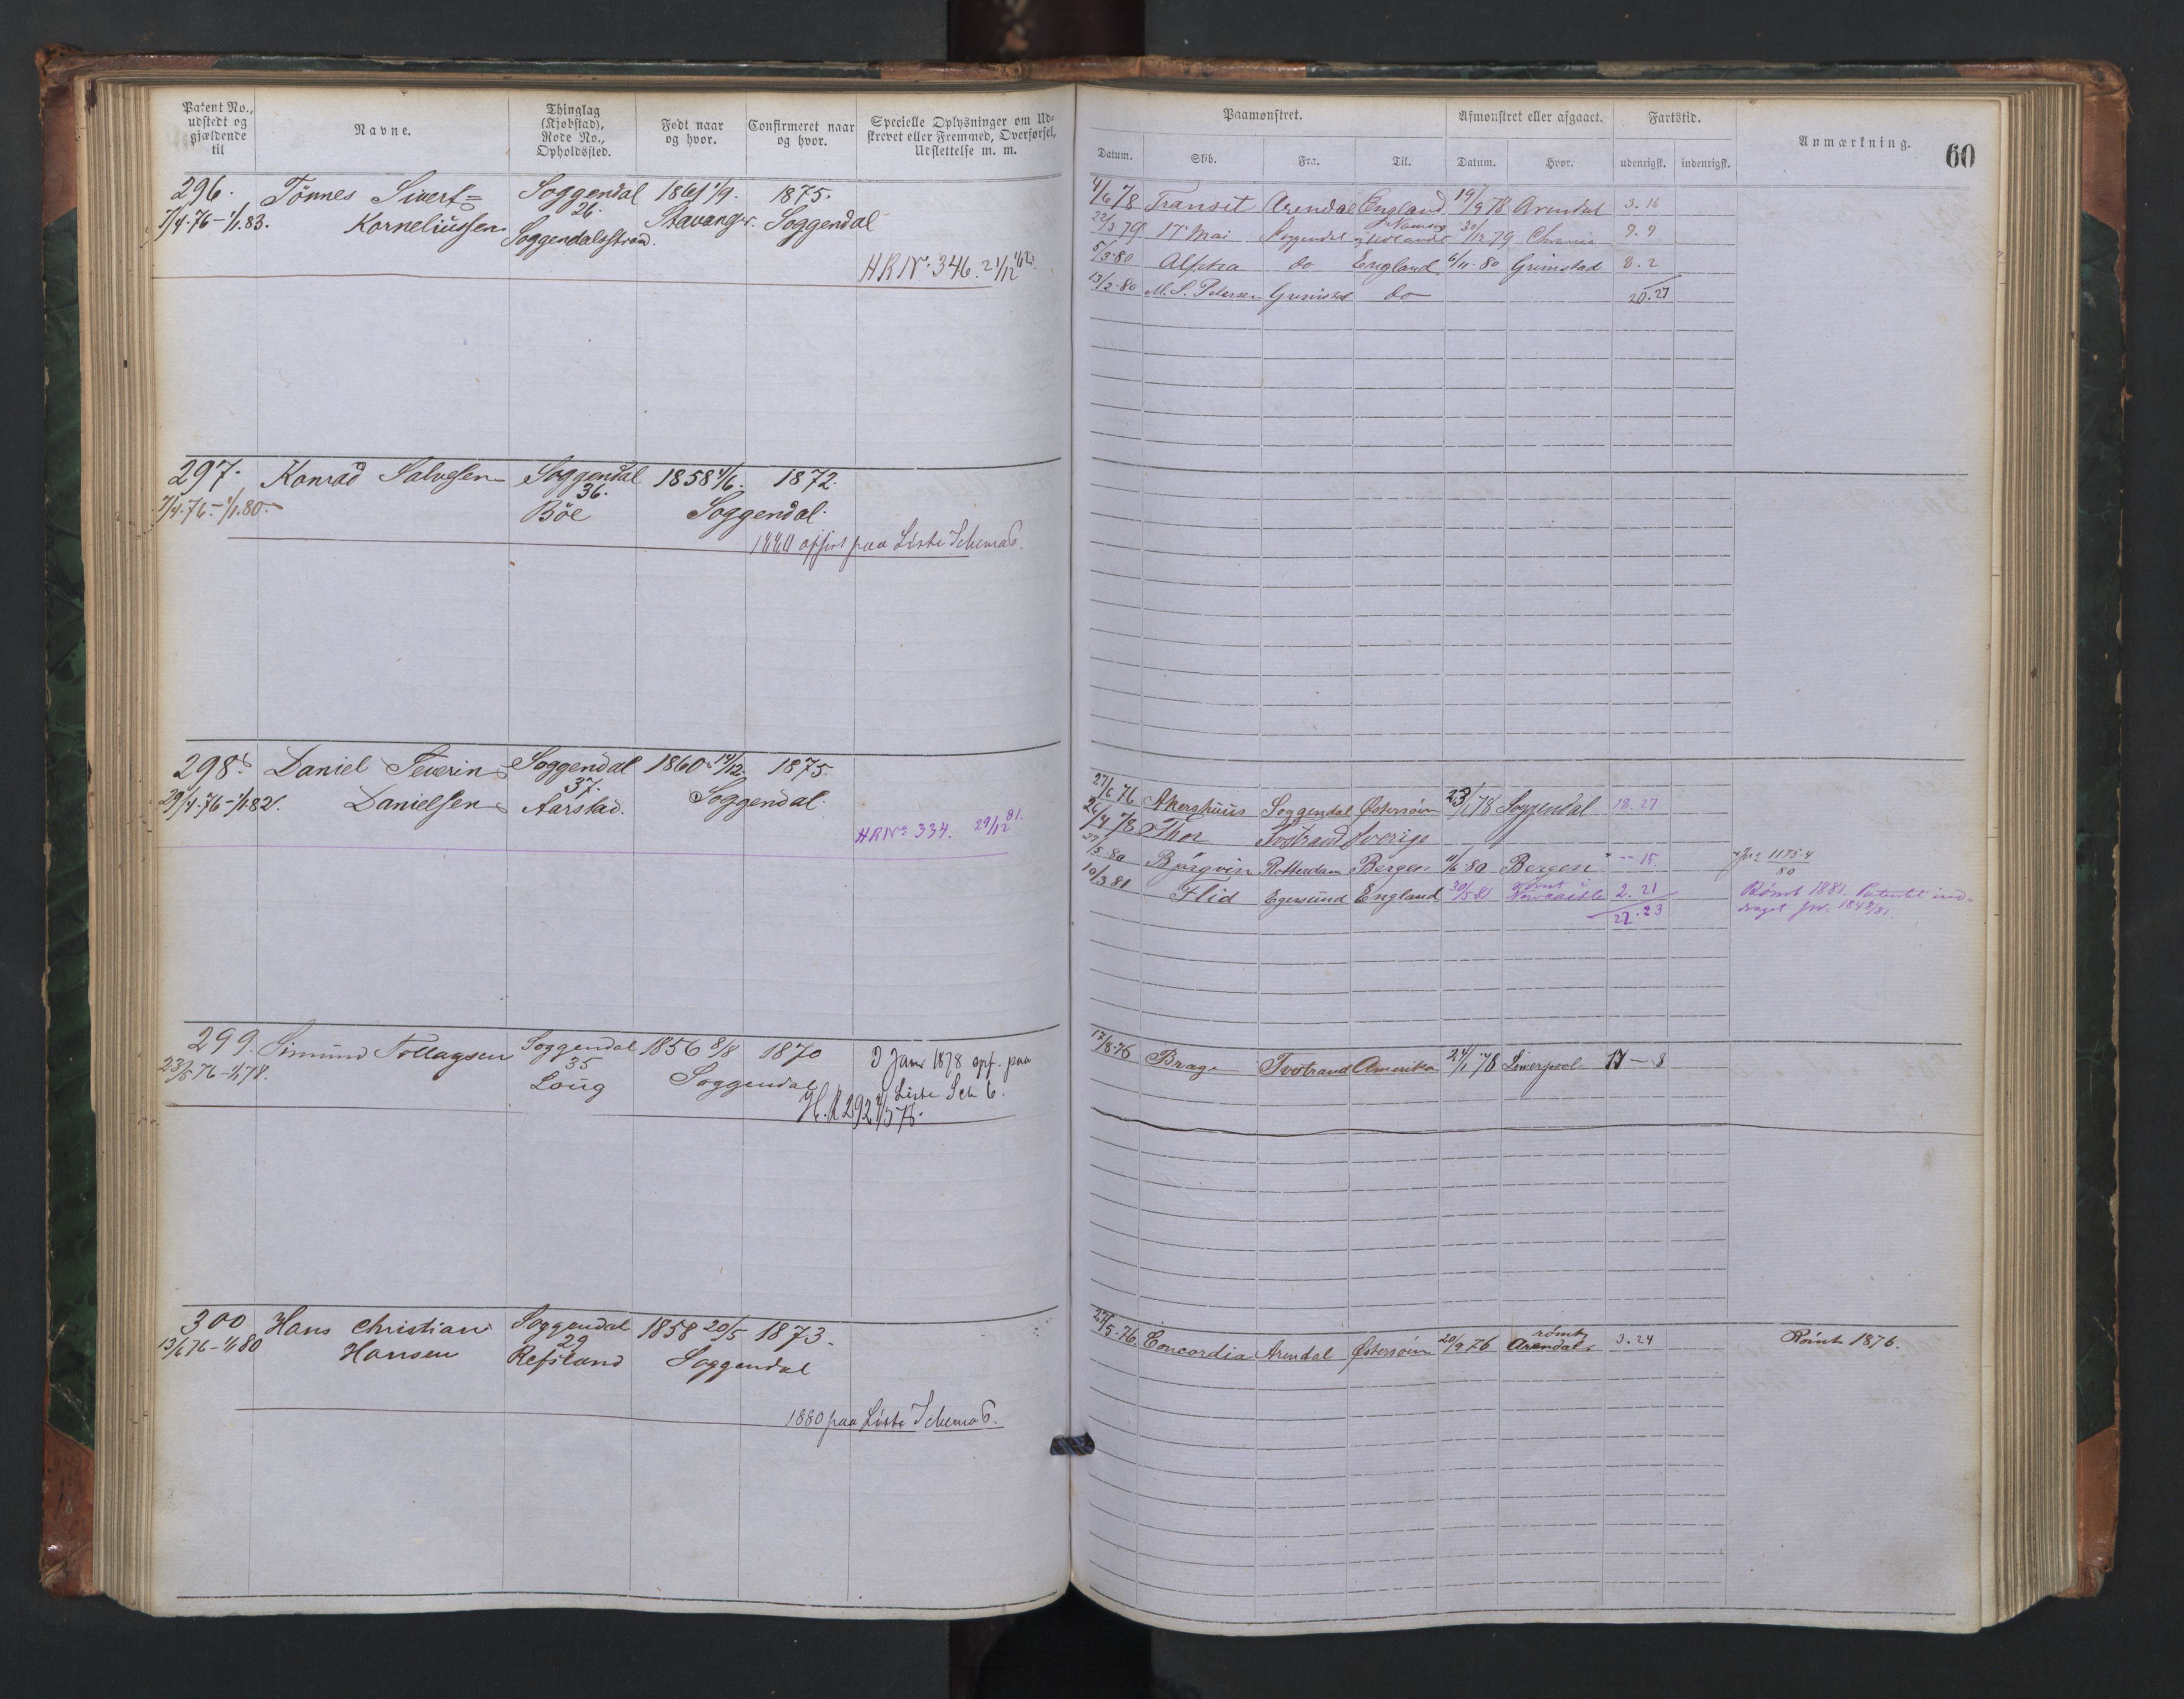 Patent No., udstedt og gjældende til
Navne.
Thinglag (Kjøbstad), Rode No., Opholdssted.
Født naar og hvor.
Confirmeret naar og hvor.
Specielle Oplysninger om Udskrevet eller Fremmed, Overførsel, Udslettelse m. m.
296. Tönnes Sivert= Soggendal 1861 1/9. 1875.
7/4.76-1/1.83. Korneliussen 26. Stavanger. Soggendal
Soggendalsstrand.
HR No. 346. 21/12
297. Konrad Salvesen Soggendal 1858 4/6. 1872.
7/4.76-1/1.80. 36. Böe Soggendal.
1880 opfört paa Liste Schema 6.
298. Daniel Severin Soggendal 1860 14/12. 1875.
29/4.76-1/1.82. Danielsen 37. Aarstad. Soggendal.
HR No. 334. 29/12 81.
299. Simund Tollagsen Soggendal 1856 8/8 1870
23/5 76-1/1 78. 35 Loug Soggendal
I Janr 1878 opf. paa
Liste Sch 6.
H.R 292
300 Hans Christian Soggendal 1858 20/5 1873.
13/6 76-1/1 80 Hansen 29 Refsland Soggendal
1880 paa Liste Schema 6.
Paamønstret.
Afmønstret eller afgaaet.
Fartstid.
Anmærkning.
60
Datum. Skib. Fra. Til. Datum. Hvor. udenrigsk. indenrigsk.
4/6 78 Transit Arendal England 19/9 78 Arendal 3.16
22/3 79. 17 Mai Soggendal Udlandet 30/12 79 Chrania 9.9
5/3.80 Alpha do England 6/11.80 Grimstad 8.2
M. S. Petersen Grimstad do 20.27
27/6 76 Akershuus Soggendal Østersøen 23/1 78 Soggendal 18.27
26/4 78 Thor Tvestrand Sverige
27/5.80 Björgvin Rotterdam Bergen 11/6 80 Bergen " - 15.
Jr. 1175.4/80
10/3 81 Flid Egersund England 30/5 81 römt i Newcastle 2.21
22.23
Römt 1881. Patentet ind=
draget Jr. 1848/81.
17/8.76 Brage Tvestrand Amerika 24/1 78 Liverpool 17 - 8
27/5.76 Concordia Arendal Østersøen 20/9 76 römt Arendal. 3.24
Römt 1876.